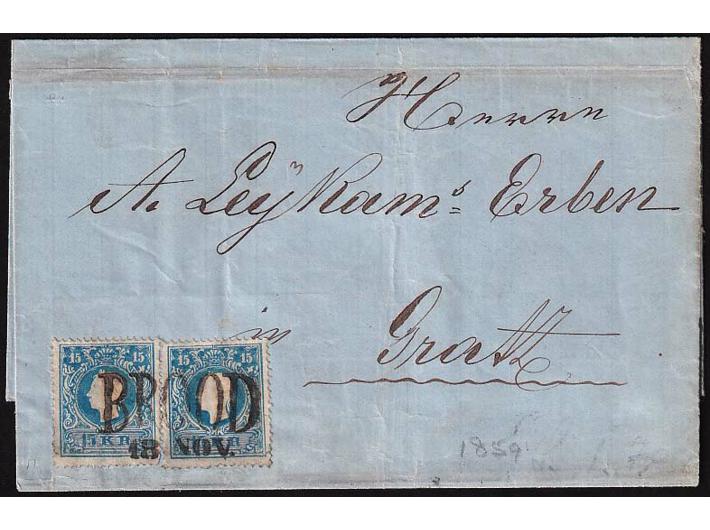 Herrn
A. Leykam's Erben
in Gratz
15 15 15 15
BROOD
15 KR
18 NOV.
1859